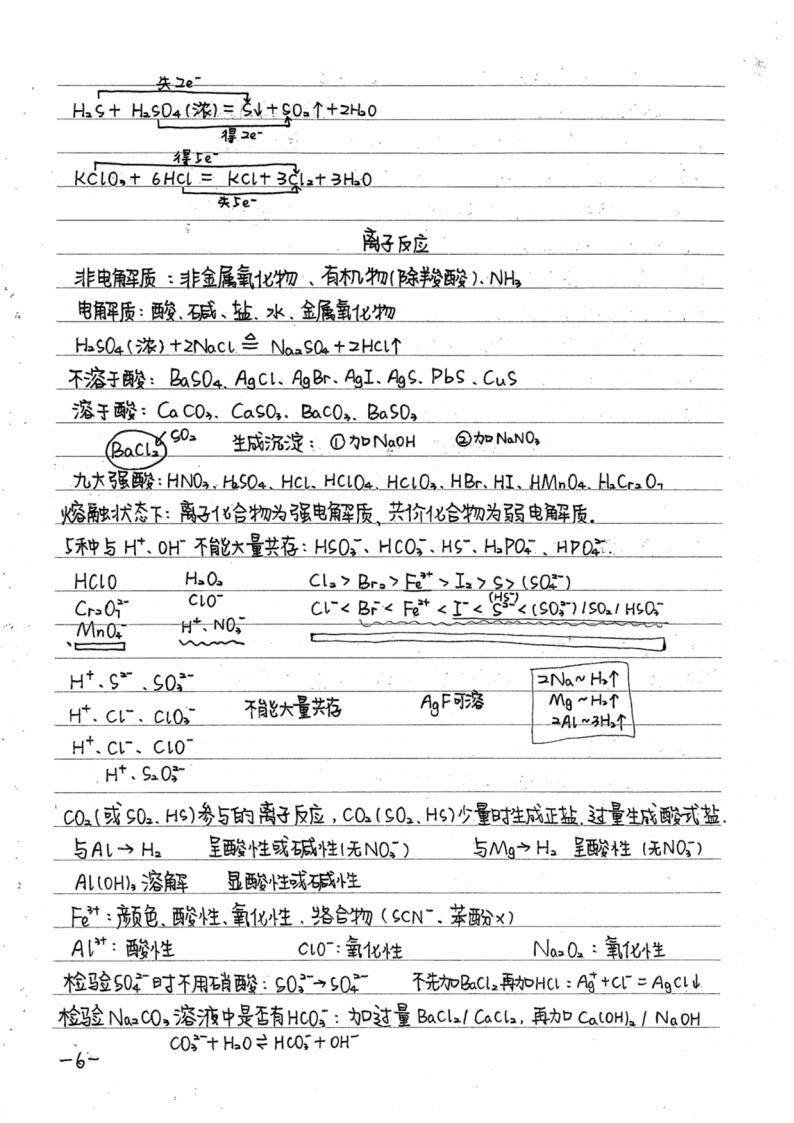 失2e⁻
H₂S + H₂SO₄(浓) = S↓ + SO₂↑ + 2H₂O
得2e⁻
得5e⁻
KClO₃ + 6HCl = KCl + 3Cl₂ + 3H₂O
失5e⁻
离子反应
非电解质：非金属氧化物、有机物(除羧酸)、NH₃
电解质：酸、碱、盐、水、金属氧化物
H₂SO₄(浓) + 2NaCl ≜ Na₂SO₄ + 2HCl↑
不溶于酸：BaSO₄、AgCl、AgBr、AgI、AgS、PbS、CuS
溶于酸：CaCO₃、CaSO₃、BaCO₃、BaSO₃
BaCl₂ SO₂ 生成沉淀：①加NaOH ②加NaNO₃
九大强酸：HNO₃、H₂SO₄、HCl、HClO₄、HClO₃、HBr、HI、HMnO₄、H₂Cr₂O₇
熔融状态下：离子化合物为强电解质、共价化合物为弱电解质.
5种与H⁺、OH⁻不能大量共存：HSO₃⁻、HCO₃⁻、HS⁻、H₂PO₄⁻、HPO₄²⁻.
HClO H₂O₂ Cl₂ > Br₂ > Fe³⁺ > I₂ > S > (SO₄²⁻)
Cr₂O₇²⁻ ClO⁻ Cl⁻ < Br⁻ < Fe²⁺ < I⁻ < S²⁻(HS⁻) < (SO₃²⁻)/SO₂/HSO₃⁻
MnO₄⁻ H⁺、NO₃⁻
H⁺、S²⁻、SO₃²⁻ 2Na~H₂↑
H⁺、Cl⁻、ClO₃⁻ 不能大量共存 AgF可溶 Mg~H₂↑
2Al~3H₂↑
H⁺、Cl⁻、ClO⁻
H⁺、S₂O₃²⁻
CO₂(或SO₂、HS)参与的离子反应，CO₂(SO₂、HS)少量时生成正盐.过量生成酸式盐.
与Al→H₂ 呈酸性或碱性(无NO₃⁻) 与Mg→H₂ 呈酸性(无NO₃⁻)
Al(OH)₃溶解 显酸性或碱性
Fe³⁺：颜色、酸性、氧化性、络合物(SCN⁻、苯酚×)
Al³⁺：酸性 ClO⁻：氧化性 Na₂O₂：氧化性
检验SO₄²⁻时不用硝酸：SO₃²⁻→SO₄²⁻ 不先加BaCl₂再加HCl：Ag⁺+Cl⁻=AgCl↓
检验Na₂CO₃溶液中是否有HCO₃⁻：加过量BaCl₂/CaCl₂，再加Ca(OH)₂/NaOH
CO₃²⁻+H₂O⇌HCO₃⁻+OH⁻
-6-